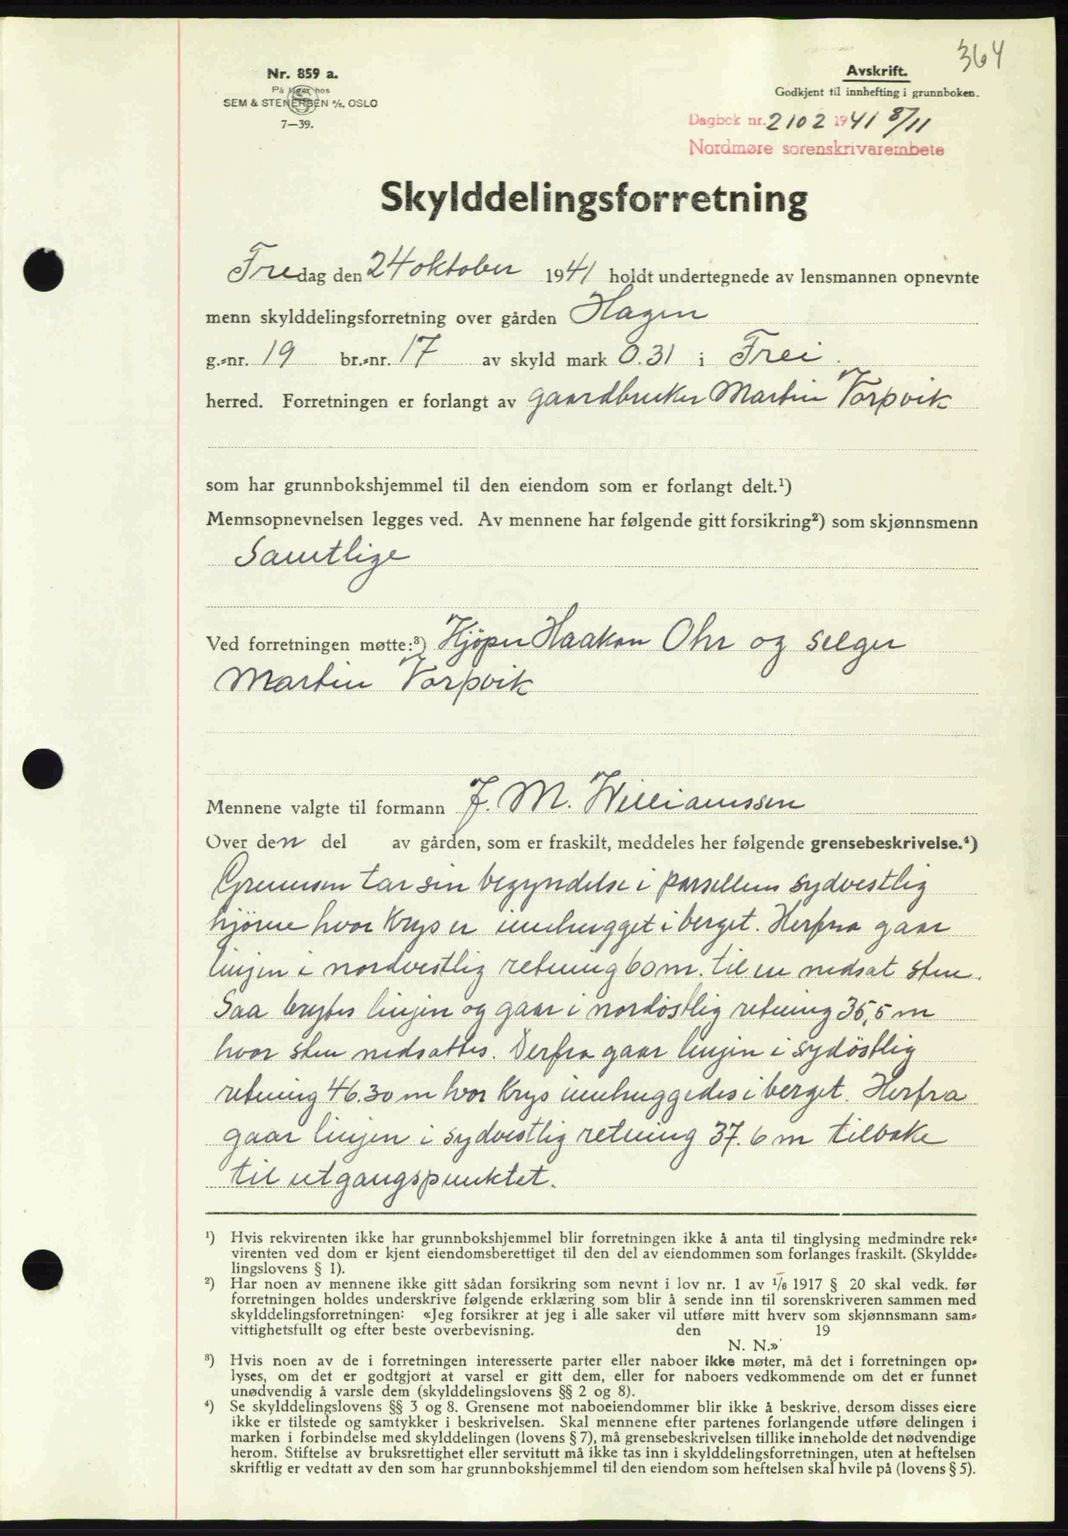 364
Nr. 859 a.
På lager hos
SEM & STENERSEN A/S. OSLO
7—39.
Avskrift.
Godkjent til innhefting i grunnboken.
Dagbok nr. 2102 1941 8/11
Nordmøre sorenskriverembete
Skylddelingsforretning
Fredag den 24 oktober 1941 holdt undertegnede av lensmannen opnevnte
menn skylddelingsforretning over gården Hagen
g.-nr. 19 br.-nr. 17 av skyld mark 0.31 i Frei.
herred. Forretningen er forlangt av gaardbruker Martin Vorpvik
som har grunnbokshjemmel til den eiendom som er forlangt delt.¹)
Mennsopnevnelsen legges ved. Av mennene har følgende gitt forsikring²) som skjønnsmenn
Samtlige
Ved forretningen møtte:³) Kjöper Haakon Ohr og selger
Martin Vorpvik
Mennene valgte til formann J. M. Williamssen
Over den del av gården, som er fraskilt, meddeles her følgende grensebeskrivelse.⁴)
Grensen tar sin begyndelse i parsellens sydvestlig
hjörne hvor Krys er innhugget i berget. Herfra gaar
linjen i nordvestlig retning 60 m. til en nedsat sten.
Saa brytes linjen og gaar i nordöstlig retning 35,5 m
hvor sten nedsattes. Derfra gaar linjen i sydöstlig
retning 46.30 m hvor Krys innhuggedes i berget. Herfra
gaar linjen i sydvestlig retning 37.6 m tilbake
til utgangspunktet.
¹) Hvis rekvirenten ikke har grunnbokshjemmel blir forretningen ikke å anta til tinglysing medmindre rek-
virenten ved dom er kjent eiendomsberettiget til den del av eiendommen som forlanges fraskilt. (Skyldde-
lingslovens § 1).
²) Har noen av mennene ikke gitt sådan forsikring som nevnt i lov nr. 1 av 1/6 1917 § 20 skal vedk. før
forretningen holdes underskrive følgende erklæring som blir å sende inn til sorenskriveren sammen med
skylddelingsforretningen: «Jeg forsikrer at jeg i alle saker vil utføre mitt hverv som skjønnsmann sam-
vittighetsfullt og efter beste overbevisning. den 19
N. N.»
³) Hvis noen av de i forretningen interesserte parter eller naboer ikke møter, må det i forretningen op-
lyses, om det er godtgjort at varsel er gitt dem, eller for naboers vedkommende om det er funnet
unødvendig å varsle dem (skylddelingslovens §§ 2 og 8).
⁴) Se skylddelingslovens §§ 3 og 8. Grensene mot naboeiendommer blir ikke å beskrive, dersom disses eiere
ikke er tilstede og samtykker i beskrivelsen. Skal mennene efter partenes forlangende utføre delingen i
marken i forbindelse med skylddelingen (lovens § 7), må grensebeskrivelsen tillike inneholde det nødvendige
herom. Stiftelse av bruksrettighet eller servitutt må ikke tas inn i skylddelingsforretningen, uten at heftelsen
skriftlig er vedtatt av den som har grunnbokshjemmel til den eiendom som heftelsen skal hvile på (lovens § 5).